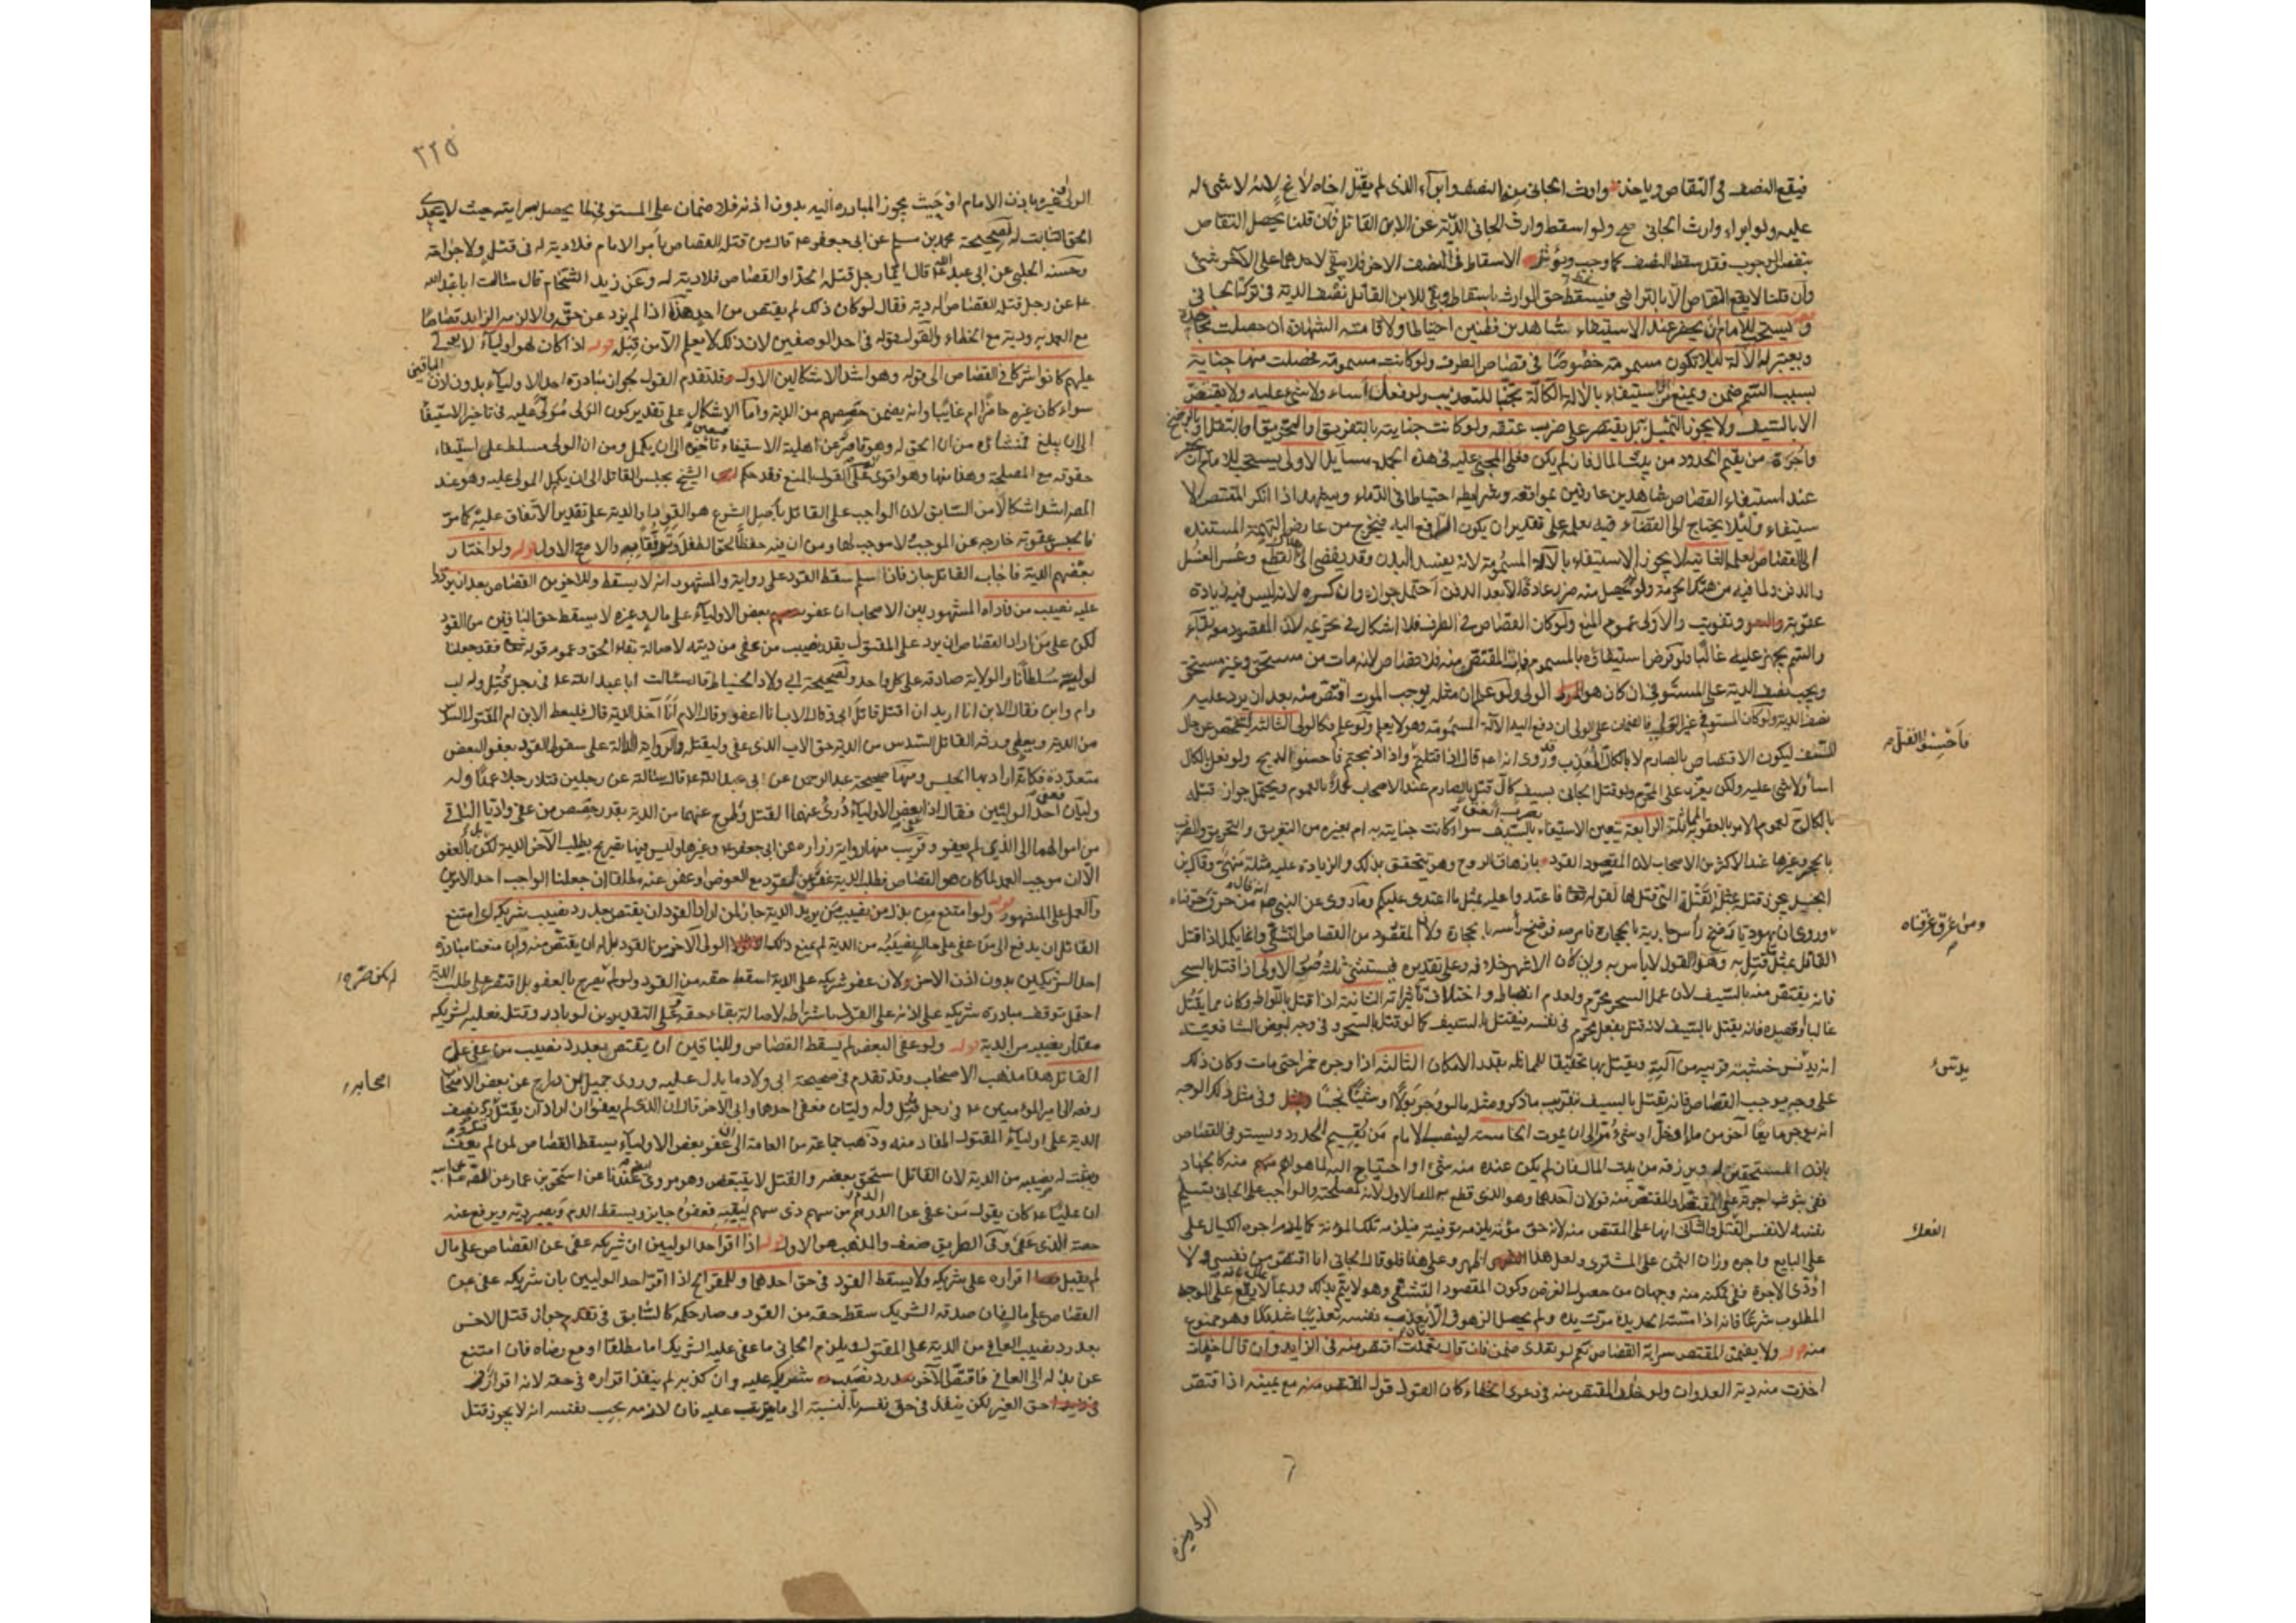 فيقع النصف في التقاص وياخذ وارث الجاني من النصف وابراء الذي لم يقتل اخاه لاغ لانه لا شيء له
عليه ولو ابراء وارث الجاني صح ولو اسقط وارث الجاني الدية عن الابن القاتل فان قلنا يحصل التقاص
بنفس الوجوب فقد سقط النصف كما وجب ويؤثر الاسقاط في النصف الاخر فلا يبقى لاحدهما على الآخر شيء
وان قلنا لا يقع التقاص الا بالتراضي فيسقط حق الوارث باسقاطه وبقي للابن القاتل نصف الدية في تركة الجاني
ويستحب للامام ان يحضر عند الاستيفاء شاهدين فطنين احتياطا ولاقامة الشهادة ان حصلت مجاحدة
ويعتبر الآلة لئلا تكون مسمومة خصوصا في قصاص الطرف ولو كانت مسمومة فحصلت منها جناية
بسبب السم ضمن ويمنع من الاستيفاء بالآلة الكالة تجنبا للتعذيب ولو فعل اساء ولا شيء عليه ولا يقتص
الا بالسيف ولا يجوز التمثيل بل يقتصر على ضرب عنقه ولو كانت جنايته بالتغريق او التحريق او بالمثقل او الرضخ
واجرة من يقيم الحدود من بيت المال فان لم يكن فعلى المجني عليه في هذه الجملة مسائل الاولى يستحب للامام ان يحضر
عند استيفاء القصاص شاهدين عارفين بمواقعه وشرايطه احتياطا في الدماء وليشهدا اذا انكر المقتص الا
ستيفاء ولئلا يحتاج الى القضاء فيه بعلمه على تقدير ان يكون الترافع اليه فيخرج من عارض التهمة المستندة
الى القضاء بعلمه الثانية لا يجوز الاستيفاء بالآلة المسمومة لانه يفسد البدن وقد يفضي الى التقطع وعسر الغسل
والدفن ولما فيه من هتك الحرمة ولو لم يحصل منه ضرر عادة الا بعد الدفن احتمل جوازه وان كسره لانه ليس فيه زيادة
عقوبة وتفويت والاولى عموم المنع ولو كان القصاص في الطرف فلا اشكال في تحريمه لان المقصود معه بقاء
والسم يجهز عليه غالبا ولو فرض استيفاؤه بالمسموم فمات المقتص منه فلا قصاص لانه مات من مستحق وغير مستحق
ويجب نصف الدية على المستوفي ان كان هو الولي ولو علم ان مثله يوجب الموت اقتص منه بعد ان يرد عليه
نصف الدية ولو كان المستوفي غير الولي فالضمان على الولي ان دفع اليه الآلة المسمومة وهو لا يعلم ولو علم فكالولي الثالثة
السيف ليكون الاقتصاص بالصارم لا بالكال المعذب وقد روى انه ع قال اذا قتلتم واذا ذبحتم فاحسنوا الذبح ولو فعل بالكال
فاحسنوا القتلة
اساء ولا شيء عليه ولكن يعزر على المحرم ولو قتل الجاني بسيف كال قتل بالصارم عند الاصحاب عملا بالعموم ويحتمل جواز قتله
بالكال لعموم الامر بالعقوبة المماثلة الرابعة يتعين الاستيفاء بالسيف سواء كانت جنايته به ام بغيره من التغريق والتحريق والضرب
بالحجر وغيرها عند الاكثر من الاصحاب لان المقصود القود بازهاق الروح وهو يتحقق بذلك والزيادة عليه مثلة منهي وقال ابن
الجنيد يجوز قتله بمثل القتلة التي قتل بها لقوله تعالى فاعتدوا عليه بمثل ما اعتدى عليكم وما روي عن النبي ص انه قال من حرق حرقناه
ومن غرق غرقناه
وروي ان يهوديا رضخ راس جارية بالحجارة فامر ص فرضخ رأسه بالحجارة ولان المقصود من القصاص التشفي وانما يكمل اذا قتل
القاتل بمثل ما قتل به وهو القول لا بأس به وان كان الاشهر خلافه وعلى تقديره فيستثنى ثلث صور الاولى اذا قتل بالسحر
فانه يقتص منه بالسيف لان عمل السحر محرم ولعدم انضباطه واختلاف تأثيراته الثانية اذا قتل باللواط وكان مما يقتل
غالبا او قصده فانه يقتل بالسيف لانه قتل بفعل محرم في نفسه فيقتل بالسيف كما لو قتل بالسحر وفي وجه لبعض الشافعية
انه يدس خشبة قريبة من آلته ويقتل بها تحقيقا للمماثلة بقدر الامكان الثالثة اذا وجره خمرا حتى مات وكان ذلك
على وجه يوجب القصاص فانه يقتل بالسيف بتقريب ما ذكر ومثله ما لو وجره بولا او شيئا نجسا وفي مثل ذلك الوجه
انه يوجر مايعا آخر من ماء او خل او شيء مر الى ان يموت الخامسة لينصب الامام من يقيم الحدود ويستوفي القصاص
باذن المستحقين له ويرزقه من بيت المال فان لم يكن عنده منه شيء او احتاج اليه لما هو اهم منه كالجهاد
ففي ثبوت اجرته على المقتص او المقتص منه قولان احدهما وهو الذي قطع به المصـ الاول لانه لمصلحته والواجب على الجاني تسليم
نفسه لا نفس القتل والثاني انها على المقتص منه لانه حق مؤنة يلزمه توفيته فيلزمه تلك المؤنة كما يلزم اجرة الكيال على
الفعل
على البايع واجرة وزان الثمن على المشتري ولعل هذا اظهر وعلى هذا فلو قال الجاني انا اقتص من نفسي ولا
اؤدي الاجرة ففي تمكنه منه وجهان من حصول الغرض وكون المقصود التشفي وهو لا يتم بذلك وربما لا يقع على الوجه
المطلوب شرعا فانه اذا مسته الحديدة مرت يده ولم يحصل الزهوق الا بتعذيب نفسه تعذيبا شديدا وهو ممنوع
منه قوله ولا يضمن المقتص سراية القصاص نعم لو تعدى ضمن فان قال تعمدت اقتص منه في الزايد وان قال اخطأت
اخذت منه دية العدوان ولو خالف المقتص منه في دعوى الخطاء كان القول قول المقتص منه مع يمينه اذا اقتص
الولي وغيره
٣٢٥
الولي او غيره باذن الامام او حيث يجوز المبادرة اليه بدون اذنه فلا ضمان على المستوفي لما يحصل بسرايته حيث لا يتعدى
الحق الثابت له لصحيحة محمد بن مسلم عن ابي جعفر ع قال من قتله القصاص بأمر الامام فلا دية له في قتل ولا جراحة
وحسنة الحلبي عن ابي عبد الله قال ايما رجل قتله الحد او القصاص فلا دية له وعن زيد الشحام قال سالت ابا عبد الله
ع عن رجل قتله القصاص له دية فقال لو كان ذلك لم يقتص من احد هذا اذا لم يزد عن حقه والا لزمه الزايد قصاصا
مع العمد ودية مع الخطاء والقول قوله في احد الوصفين لان ذلك لا يعلم الا من قبله قوله اذا كان له اولياء لا يولى
عليهم كانوا شركا في القصاص الى قوله وهو اشد الاشكالين الاول قد تقدم القول بجواز مبادرة احد الاولياء بدون اذن الباقين
سواء كان غيره حاضرا ام غايبا وانه يضمن حصصهم من الدية واما الاشكال على تقدير كون الولي مولى عليه في تاخير الاستيفاء
الى ان يبلغ فمنشاؤه من ان الحق له وهو قاصر عن اهلية الاستيفاء فتعين تأخيره الى ان يكمل ومن ان الولي مسلط على استيفاء
حقوقه مع المصلحة وهذا منها وهو اقوى وعلى القول بالمنع فقد حكم الشيخ بحبس القاتل الى ان يكمل المولى عليه وهو عند
المصـ اشد اشكالا من السابق لان الواجب على القاتل بأصل الشرع هو القود او الدية على تقدير الاتفاق عليها كما مر
فالحبس عقوبة خارجة عن الموجب لا موجب لها ومن ان فيه حفظا لحق الطفل والاصح الاول قوله ولو اختار
بعضهم الدية فاجاب القاتل جاز فاذا سلم سقط القود على رواية والمشهور انه لا يسقط وللآخرين القصاص بعد ان يردوا
عليه نصيب من فاداه المشهور بين الاصحاب ان عفو بعض الاولياء على مال او غيره لا يسقط حق الباقين من القود
لكن على من اراد القصاص ان يرد على المقتول بقدر نصيب من عفى من ديته لاصالة بقاء الحق وعموم قوله تعالى فقد جعلنا
لوليه سلطانا والولاية صادقة على كل واحد ولصحيحة ابي ولاد الحناط قال سالت ابا عبد الله ع في رجل قتل وله اب
وام وابن فقال الابن انا اريد ان اقتل قاتل ابي وقال الاب انا اعفو وقالت الام انا آخذ الدية قال فليعط الابن ام المقتول السدس
من الدية ويعطي ورثة القاتل السدس من الدية حق الاب الذي عفى وليقتله والرواية الدالة على سقوط القود بعفو البعض
متعددة منها صحيحة عبد الرحمن عن ابي عبد الله ع قال سالته عن رجلين قتلا رجلا عمدا وله
وليان فعفى احد الوليين فقال اذا عفى بعض الاولياء درئ عنهما القتل وطرح عنهما من الدية بقدر حصص من عفى واديا الباقي
من اموالهما الى الذي لم يعف وقريب منها رواية زرارة عن ابي جعفر ع وغيرها وليس فيها تصريح بطلب الآخر الدية بل بالعفو
الا ان موجب العمد لما كان هو القصاص فطلب الدية عفو عن القود مع العوض او عفو عنه مطلقا ان جعلنا الواجب احد الامرين
والعمل على المشهور قوله ولو امتنع من بذل من نصيب من يريد الدية جاز لمن اراد القود ان يقتص بعد رد نصيب شريكه اي امتنع
القاتل ان يدفع الى من عفى على مال نصيبه من الدية لم يمنع ذلك الولي الآخر من القود بل له ان يقتص منه وان منعنا مبادرة
احد الشريكين بدون اذن الآخر ولان عفو شريكه على الدية اسقط حقه من القود ولو لم يصرح بالعفو بل اقتصر على طلب الدية
لم يكن
احتمل توقف مبادرة شريكه على اذنه على القول باشتراطه لاصالة بقاء حقه وعلى التقديرين لو بادر وقتل فعليه لشريكه
مقدار نصيبه من الدية قوله ولو عفى البعض لم يسقط القصاص وللباقين ان يقتص بعد رد نصيب من عفى على
القاتل هذا مذهب الاصحاب وقد تقدم في صحيحة ابي ولاد ما يدل عليه وروى جميل بن دراج عن بعض اصحابه
اصحابه
رفعه الى امير المؤمنين ع في رجل قتل وله وليان فعفى احدهما وابى الآخر قال ان الذي لم يعف ان اراد ان يقتل رد نصف
الدية على اولياء المقتول المقاد منه وذهب جماعة من العامة الى ان عفو بعض الاولياء يسقط القصاص لمن لم يعف
ويثبت له نصيبه من الدية لان القاتل استحق بعضه والقتل لا يتبعض وهو مروي عندنا عن اسحق بن عمار عن الصادق عن ابيه
ان عليا ع كان يقول من عفى عن الدم من سهم ذي سهم له فيه فعفوه جايز ويسقط الدم وتصير دية ويرفع عنه
حصة الذي عفى وفي الطريق ضعف والمذهب هو الاول قوله اذا اقر احد الوليين ان شريكه عفى عن القصاص على مال
لم يقبل اقراره على شريكه ولا يسقط القود في حق احدهما وللمقر الخ اذا اقر احد الوليين بان شريكه عفى عن
القصاص على مال فان صدقه الشريك سقط حقه من القود وصار حكمه كالسابق في تقديم جواز قتل الاخر
بعد رد نصيب العافي من الدية على المقتول ويلزم الجاني ما عفى عليه الشريك اما مطلقا او مع رضاه فان امتنع
عن بذله الى العافي فاقتص الآخر بعد رد نصيب شريكه عليه وان كذبه لم ينفذ اقراره في حقه لانه اقرار في
حق الغير لكن ينفذ في حق نفسه بالنسبة الى ما يترتب عليه فان لازمه بحسب نفسه انه لا يجوز قتل